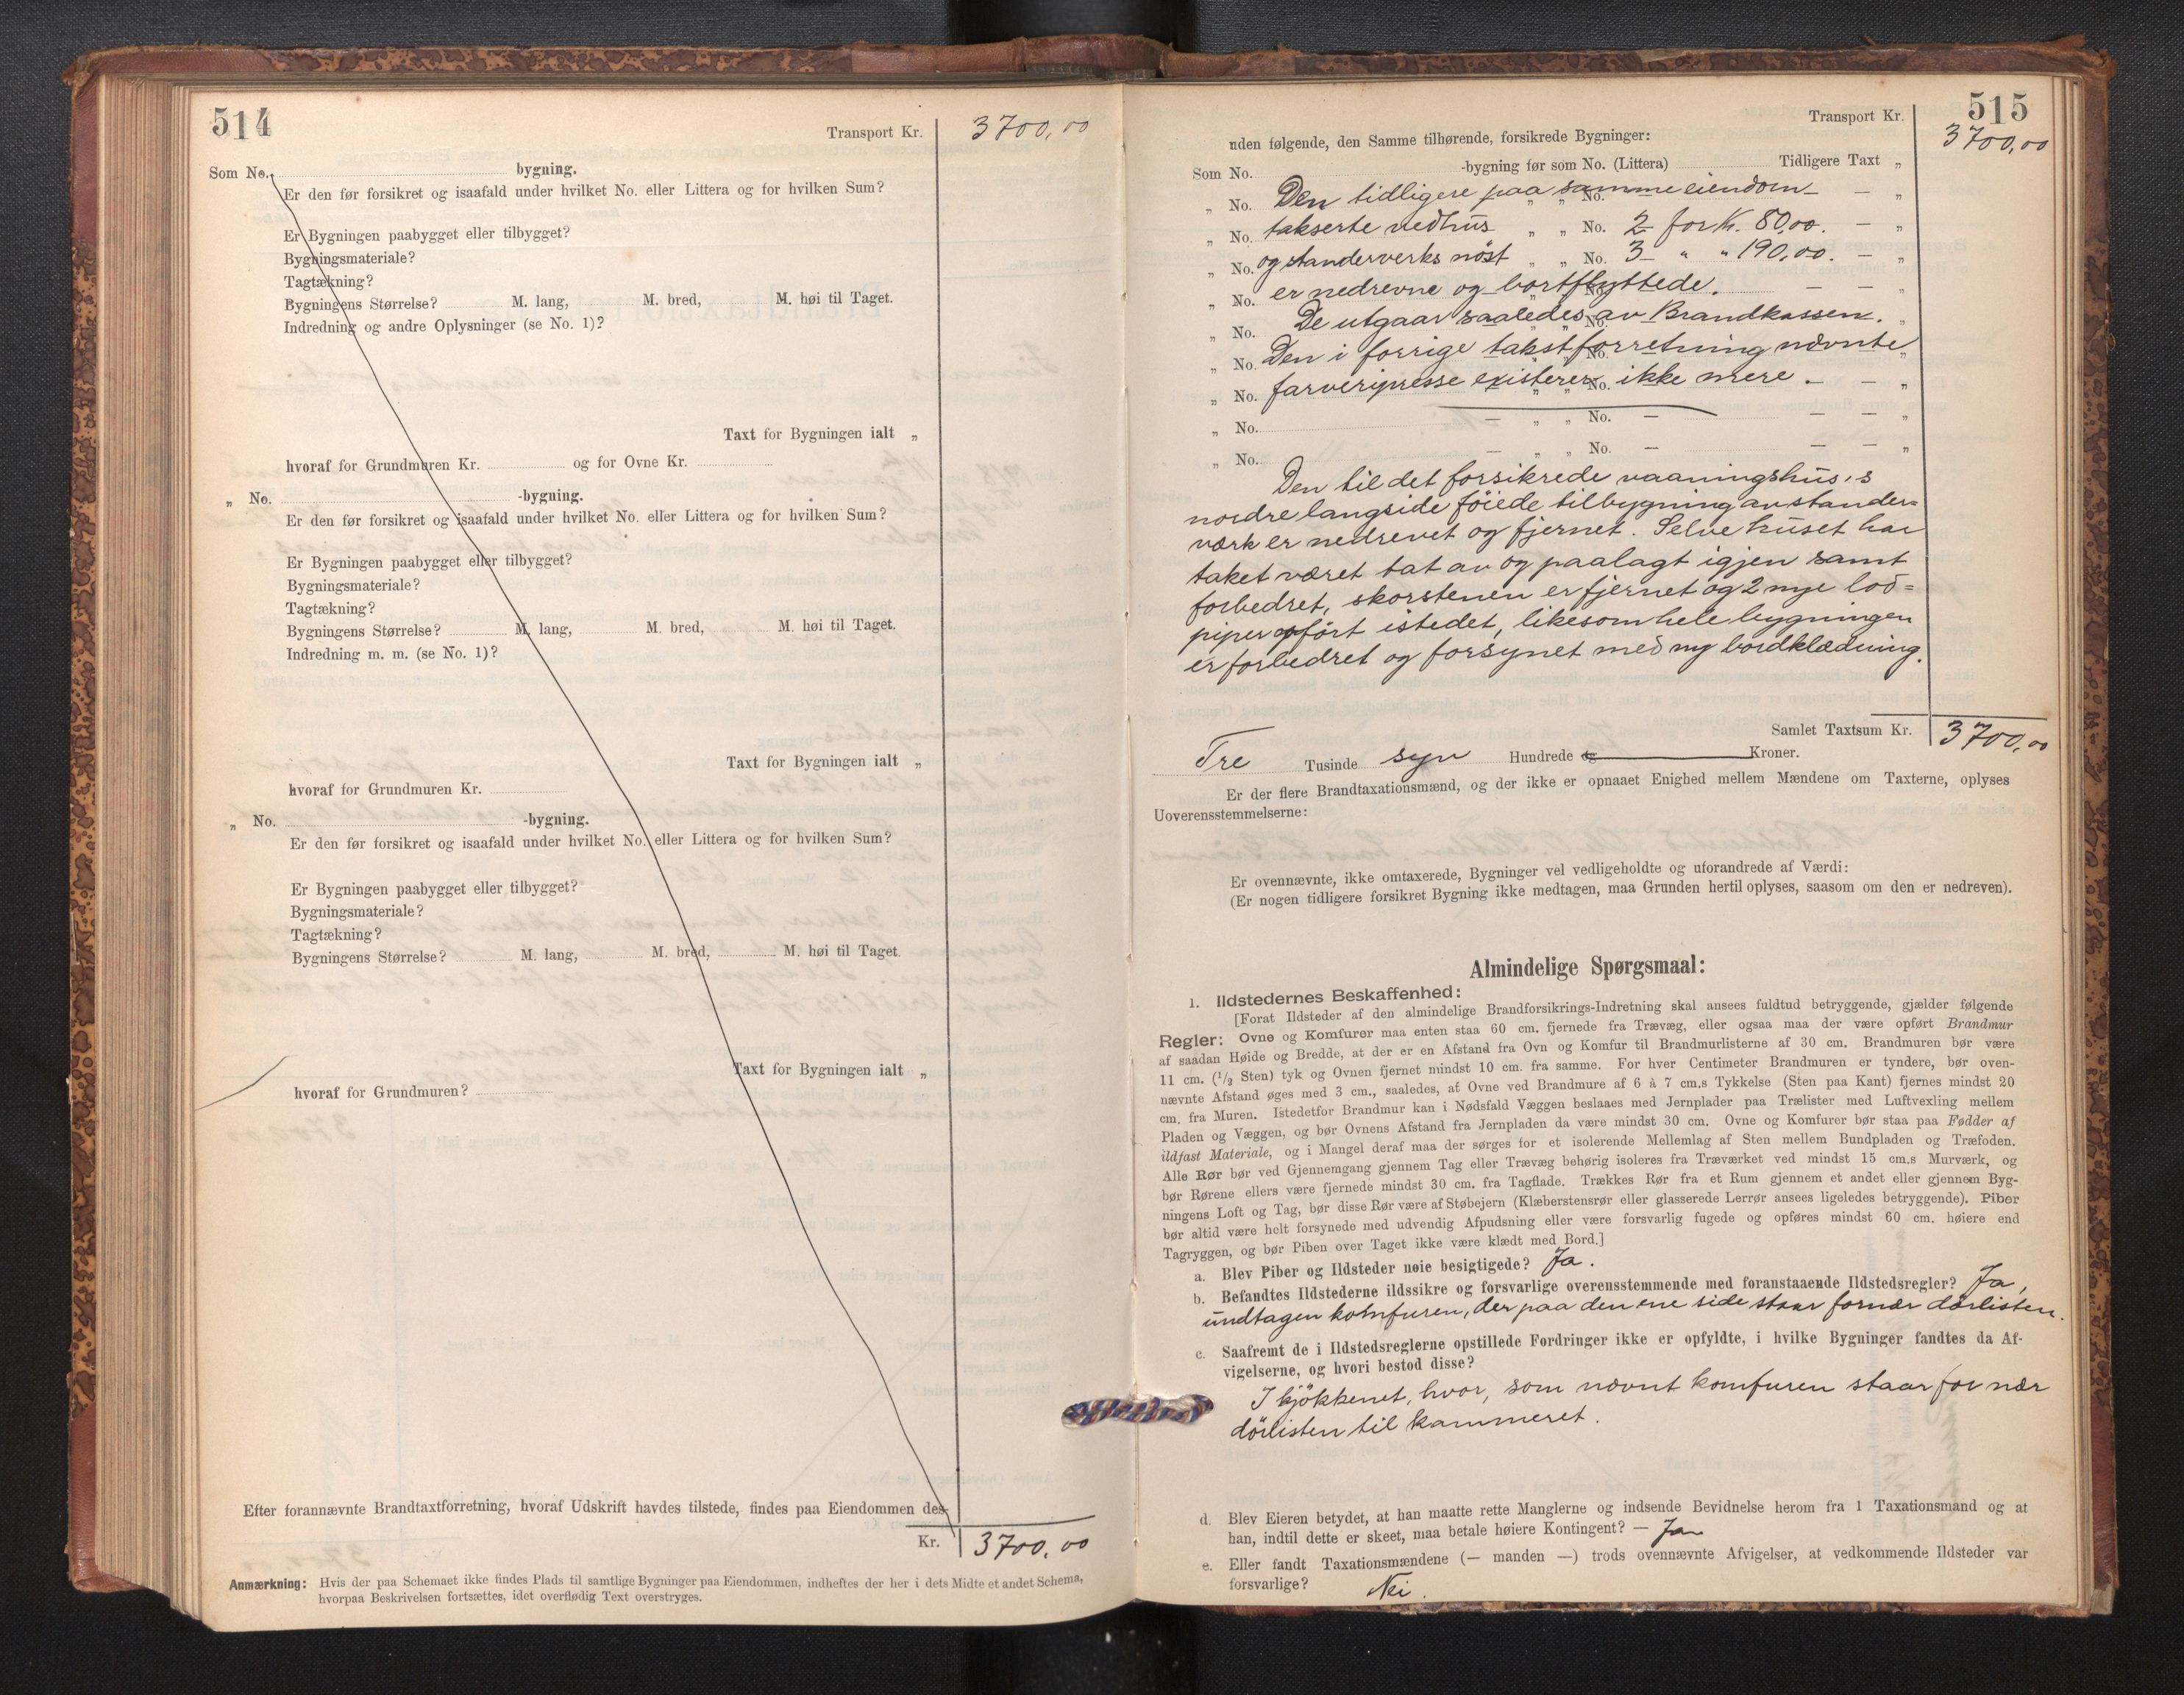 514
Transport Kr. 3700,00
Som No. bygning.
Er den før forsikret og isaafald under hvilket No. eller Littera og for hvilken Sum?
Er Bygningen paabygget eller tilbygget?
Bygningsmateriale?
Tagtækning?
Bygningens Størrelse? M. lang, M. bred, M. høi til Taget.
Indredning og andre Oplysninger (se No. 1)?
Taxt for Bygningen ialt „
hvoraf for Grundmuren Kr. og for Ovne Kr.
„ No. -bygning.
Er den før forsikret og isaafald under hvilket No. eller Littera og for hvilken Sum?
Er Bygningen paabygget eller tilbygget?
Bygningsmateriale?
Tagtækning?
Bygningens Størrelse? M. lang, M. bred, M. høi til Taget.
Indredning m. m. (se No. 1)?
Taxt for Bygningen ialt „
hvoraf for Grundmuren Kr.
„ No. -bygning.
Er den før forsikret og isaafald under hvilket No. eller Littera og for hvilken Sum?
Er Bygningen paabygget eller tilbygget?
Bygningsmateriale?
Tagtækning?
Bygningens Størrelse? M. lang, M. bred, M. høi til Taget.
Taxt for Bygningen ialt „
hvoraf for Grundmuren?
Efter forannævnte Brandtaxtforretning, hvoraf Udskrift havdes tilstede, findes paa Eiendommen des-
Kr. 3700,00
Anmærkning: Hvis der paa Schemaet ikke findes Plads til samtlige Bygninger paa Eiendommen, indheftes der her i dets Midte et andet Schema,
hvorpaa Beskrivelsen fortsættes, idet overflødig Text overstryges.
515
Transport Kr. 3700,00
nden følgende, den Samme tilhørende, forsikrede Bygninger:
Som No. -bygning før som No. (Littera) Tidligere Taxt „
„ No. Den tidligere paa samme eiendom „ „ No. — „
„ No. takserte vedhus „ „ No. 2 for K. 80,00. — „
„ No. og standerverks nöst „ „ No. 3 „ „ 190,00. — „
„ No. er nedrevne og bortflyttede. No. — — „
„ No. De utgaar saaledes av Brandkassen. No. „
„ No. Den i forrige takstforretning nævnte No. „
„ No. farveripresse existerer ikke mere. No. — — „
„ No. — „ „ No. — — — „
„ No. — „ „ No. — — — „
Den til det forsikrede vaaningshus's
nordre langside föiede tilbygning av stander=
værk er nedrevet og fjernet. Selve huset har
taket været tat av og paalagt igjen samt
forbedret, skorstenen er fjernet og 2 nye lod=
piper opfört istedet, likesom hele bygningen
er forbedret og forsynet med ny bordklædning.
Samlet Taxtsum Kr. 3700,00
Tre Tusinde syv Hundrede og Kroner.
Er der flere Brandtaxationsmænd, og der ikke er opnaaet Enighed mellem Mændene om Taxterne, oplyses
Uoverensstemmelserne:
Er ovennævnte, ikke omtaxerede, Bygninger vel vedligeholdte og uforandrede af Værdi:
(Er nogen tidligere forsikret Bygning ikke medtagen, maa Grunden hertil oplyses, saasom om den er nedreven).
Almindelige Spørgsmaal:
1. Ildstedernes Beskaffenhed:
[Forat Ildsteder af den almindelige Brandforsikrings-Indretning skal ansees fuldtud betryggende, gjælder følgende
Regler: Ovne og Komfurer maa enten staa 60 cm. fjernede fra Trævæg, eller ogsaa maa der være opført Brandmur
af saadan Høide og Bredde, at der er en Afstand fra Ovn og Komfur til Brandmurlisterne af 30 cm. Brandmuren bør være
11 cm. (1/2 Sten) tyk og Ovnen fjernet mindst 10 cm. fra samme. For hver Centimeter Brandmuren er tyndere, bør oven-
nævnte Afstand øges med 3 cm., saaledes, at Ovne ved Brandmure af 6 à 7 cm.s Tykkelse (Sten paa Kant) fjernes mindst 20
cm. fra Muren. Istedetfor Brandmur kan i Nødsfald Væggen beslaaes med Jernplader paa Trælister med Luftvexling mellem
Pladen og Væggen, og bør Ovnens Afstand fra Jernpladen da være mindst 30 cm. Ovne og Komfurer bør staa paa Fødder af
ildfast Materiale, og i Mangel deraf maa der sørges for et isolerende Mellemlag af Sten mellem Bundpladen og Træfoden.
Alle Rør bør ved Gjennemgang gjennem Tag eller Trævæg behørig isoleres fra Træværket ved mindst 15 cm.s Murværk, og
bør Rørene ellers være fjernede mindst 30 cm. fra Tagflade. Trækkes Rør fra et Rum gjennem et andet eller gjennem Byg-
ningens Loft og Tag, bør disse Rør være af Støbejern (Klæberstensrør eller glasserede Lerrør ansees ligeledes betryggende). Piber
bør altid være helt forsynede med udvendig Afpudsning eller være forsvarlig fugede og opføres mindst 60 cm. høiere end
Tagryggen, og bør Piben over Taget ikke være klædt med Bord.]
a. Blev Piber og Ildsteder nøie besigtigede? Ja.
b. Befandtes Ildstederne ildssikre og forsvarlige overensstemmende med foranstaaende Ildstedsregler? Ja,
undtagen komfuren, der paa den ene side staar fornær dörlisten.
c. Saafremt de i Ildstedsreglerne opstillede Fordringer ikke er opfyldte, i hvilke Bygninger fandtes da Af-
vigelserne, og hvori bestod disse?
I kjökkenet, hvor, som nævnt komfuren staar for nær
dörlisten til kammeret.
d. Blev Eieren betydet, at han maatte rette Manglerne og indsende Bevidnelse herom fra 1 Taxationsmand og at
han, indtil dette er skeet, maa betale høiere Kontingent? — Ja
e. Eller fandt Taxationsmændene (— manden —) trods ovennævnte Afvigelser, at vedkommende Ildsteder var
forsvarlige? Nei.